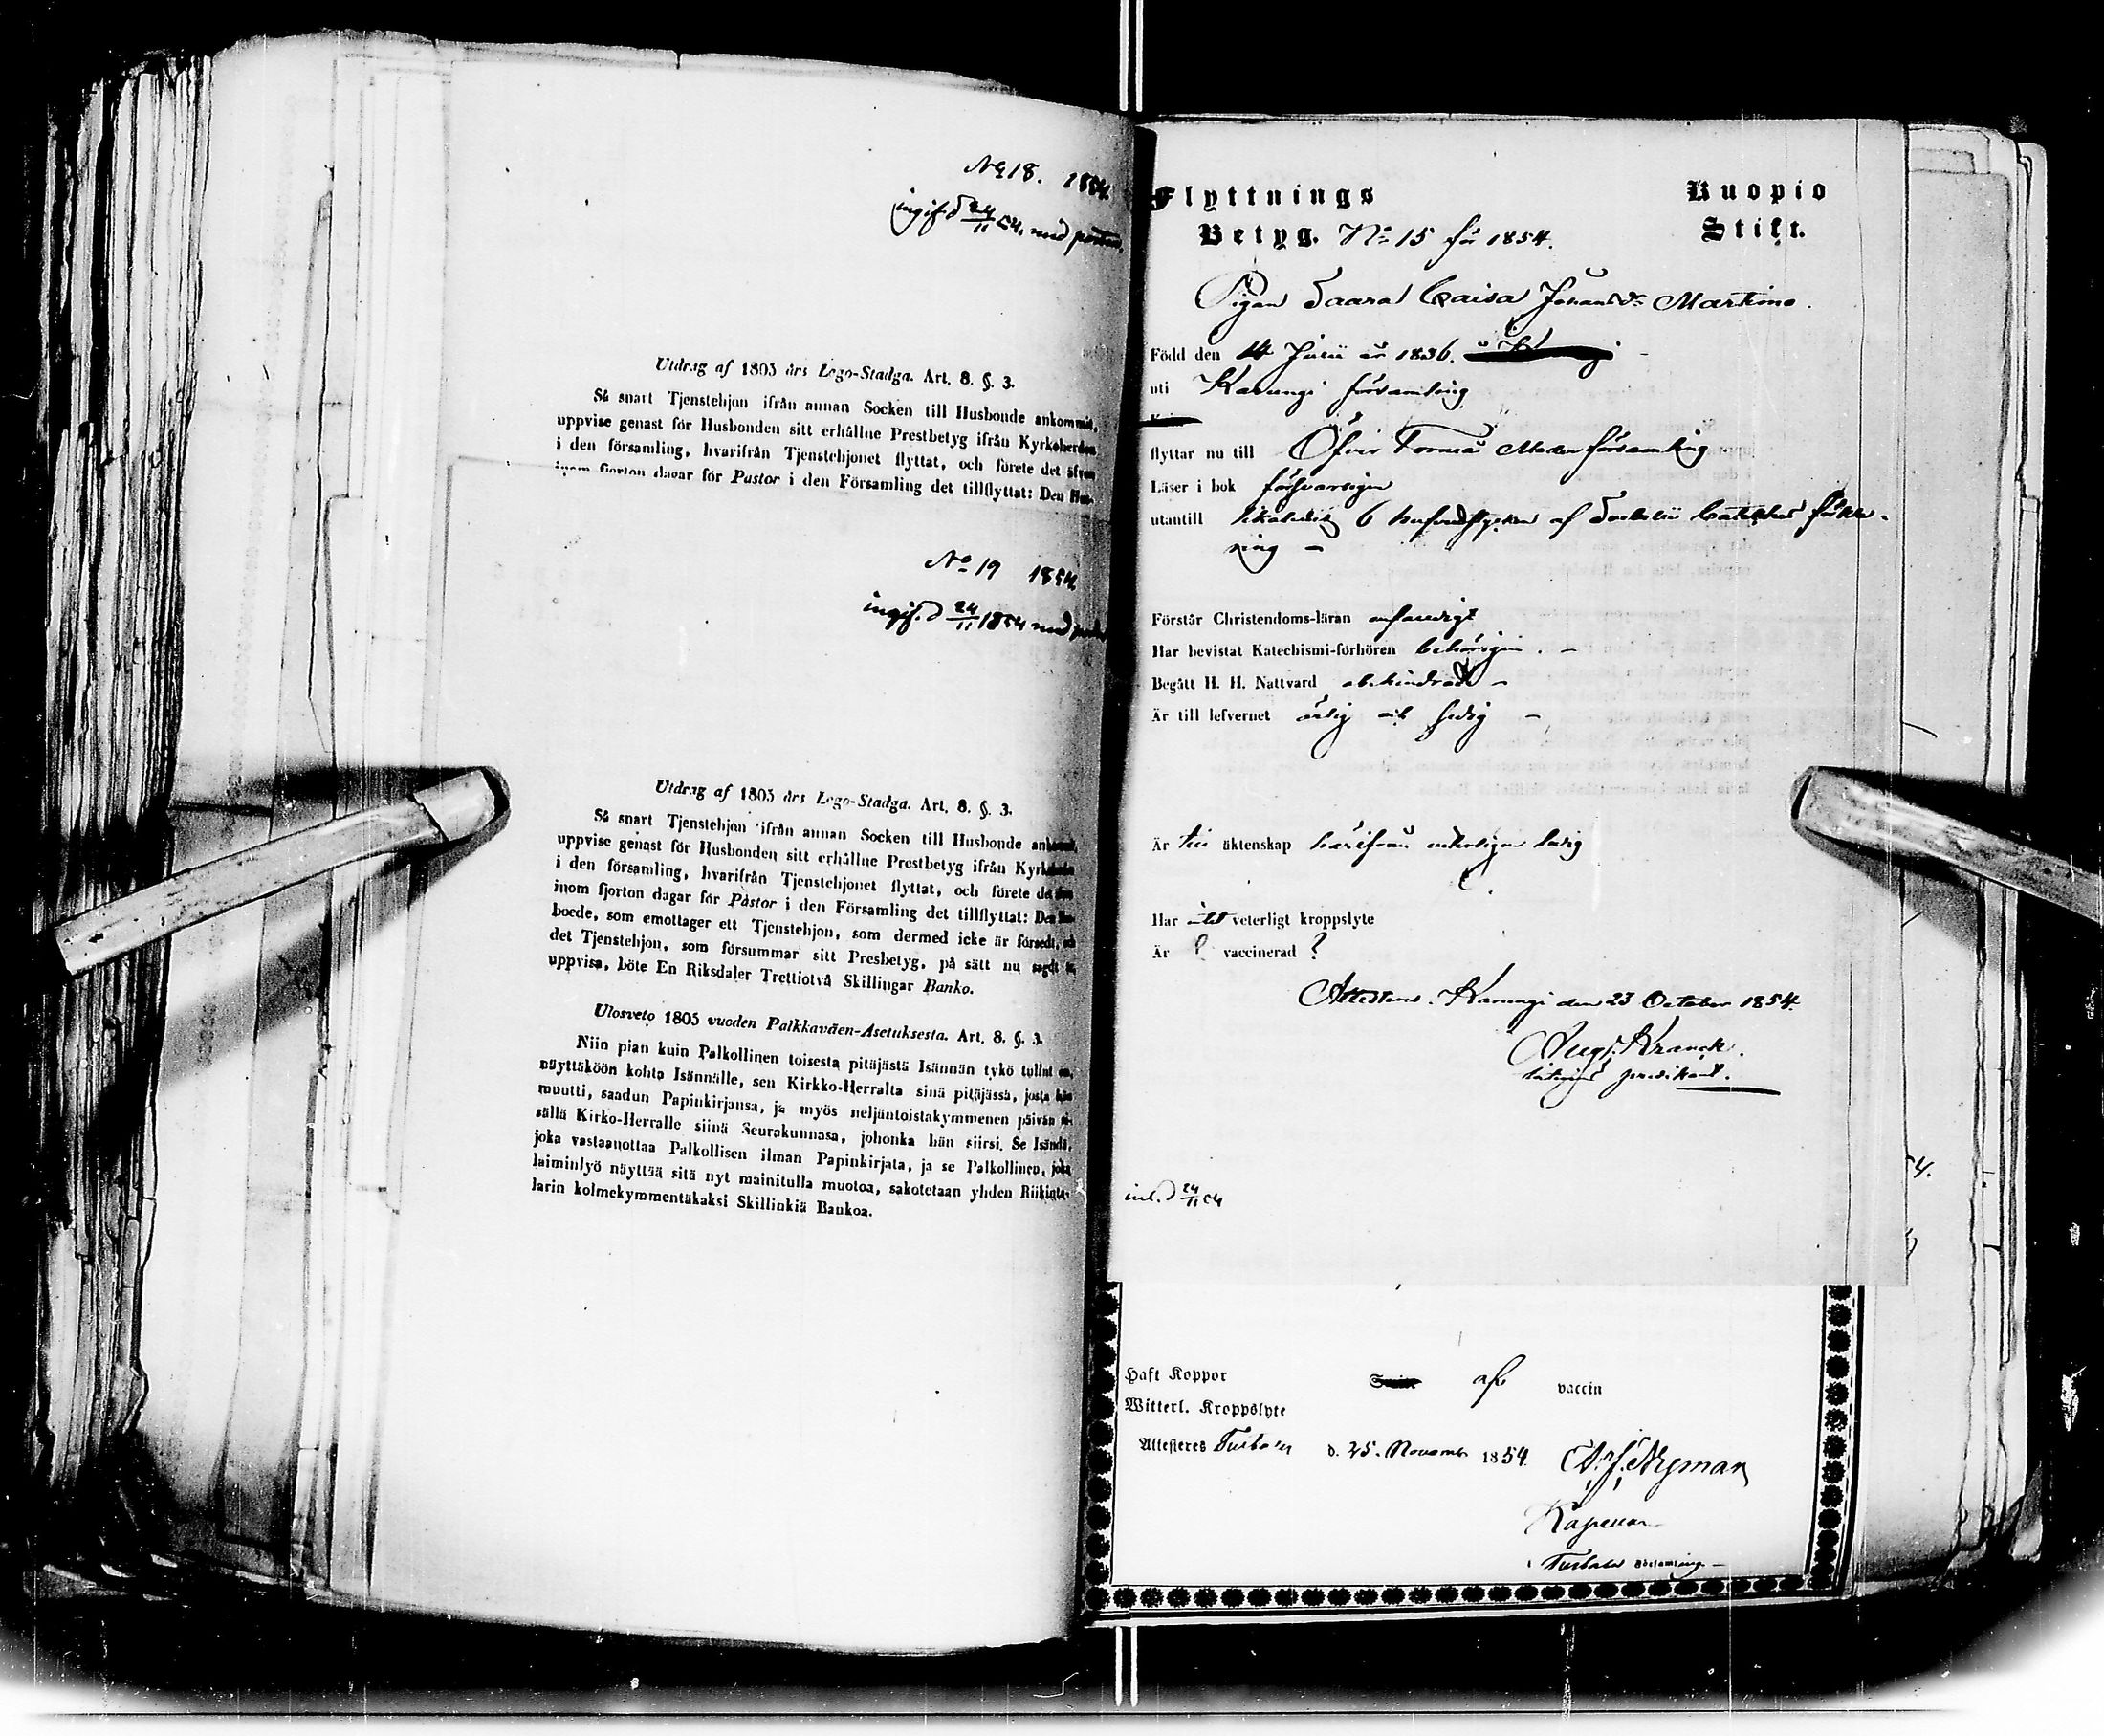 No 18. 1854.
ingif. d 24/11 54. med posten.
Utdrag af 1805 års Lego-Stadga. Art. 8. §. 3.
Så snart Tjenstehjon ifrån annan Socken till Husbonde ankommit,
uppvise genast för Husbonden sitt erhållne Prestbetyg ifrån Kyrkoherden
i den församling, hvarifrån Tjenstehjonet flyttat, och förete det äfven
inom fjorton dagar för Pastor i den Församling det tillflyttat: Den Hus-
No 19 1854.
ingif. d 24/11 1854 med
Utdrag af 1805 års Lego-Stadga. Art. 8. §. 3.
Så snart Tjenstehjon ifrån annan Socken till Husbonde
uppvise genast för Husbonden sitt erhållne Prestbetyg ifrån
i den församling, hvarifrån Tjenstehjonet flyttat, och förete det
inom fjorton dagar för Pastor i den Församling det tillflyttat: Den
boede, som emottager ett Tjenstehjon, som dermed icke är försedt,
det Tjenstehjon, som försummar sitt Presbetyg, på sätt nu sagdt
uppvisa, böte En Riksdaler Trettiotvå Skillingar Banko.
Ulosveto 1805 vuoden Palkkaväen-Asetuksesta. Art. 8. §. 3.
Niin pian kuin Palkollinen toisesta pitäjästä Isännän tykö tullut on,
näyttäköön kohta Isännälle, sen Kirkko-Herralta sinä pitäjässä, josta hän
muutti, saadun Papinkirjansa, ja myös neljäntoistakymmenen päivän si-
sällä Kirko-Herralle siinä Seurakunnasa, johonka hän siirsi. Se Isändä,
joka vastaanottaa Palkollisen ilman Papinkirjata, ja se Palkollinen, joka
laiminlyö näyttää sitä nyt mainitulla muotoa, sakotetaan yhden Riikinta-
larin kolmekymmentäkaksi Skillinkiä Bankoa.
Flyttnings Kuopio
Betyg. No 15 för 1854. Stift.
Pigan Saara Caisa Johansdr Martimo.
Född den 14 Junii år 1836.
uti Karungi församling
flyttar nu till Öfver Torneå Moderförsamling
Läser i bok försvarligen
utantill likaledes 6 hufvudstycken af Svebelii Cateches förkla-
ring –
Förstår Christendoms-läran enfaldigt
Har bevistat Katechismi-förhören behörigen. –
Begått H. H. Nattvard obehindrad –
Är till lefvernet ärlig och sedig –
Är till äktenskap härifrån veterligen ledig
Har intet veterligt kroppslyte
Är ? vaccinerad ?
Attesteras. Karungi den 23 October 1854.
Aug. Kranck.
predikant.
inl. d 24/11 54
Haft Koppor af vaccin
Witterl. Kroppslyte
Attesteres Turtola d. 25. Novemb. 1854. Nyman
Kapellan
i Turtola Församling –